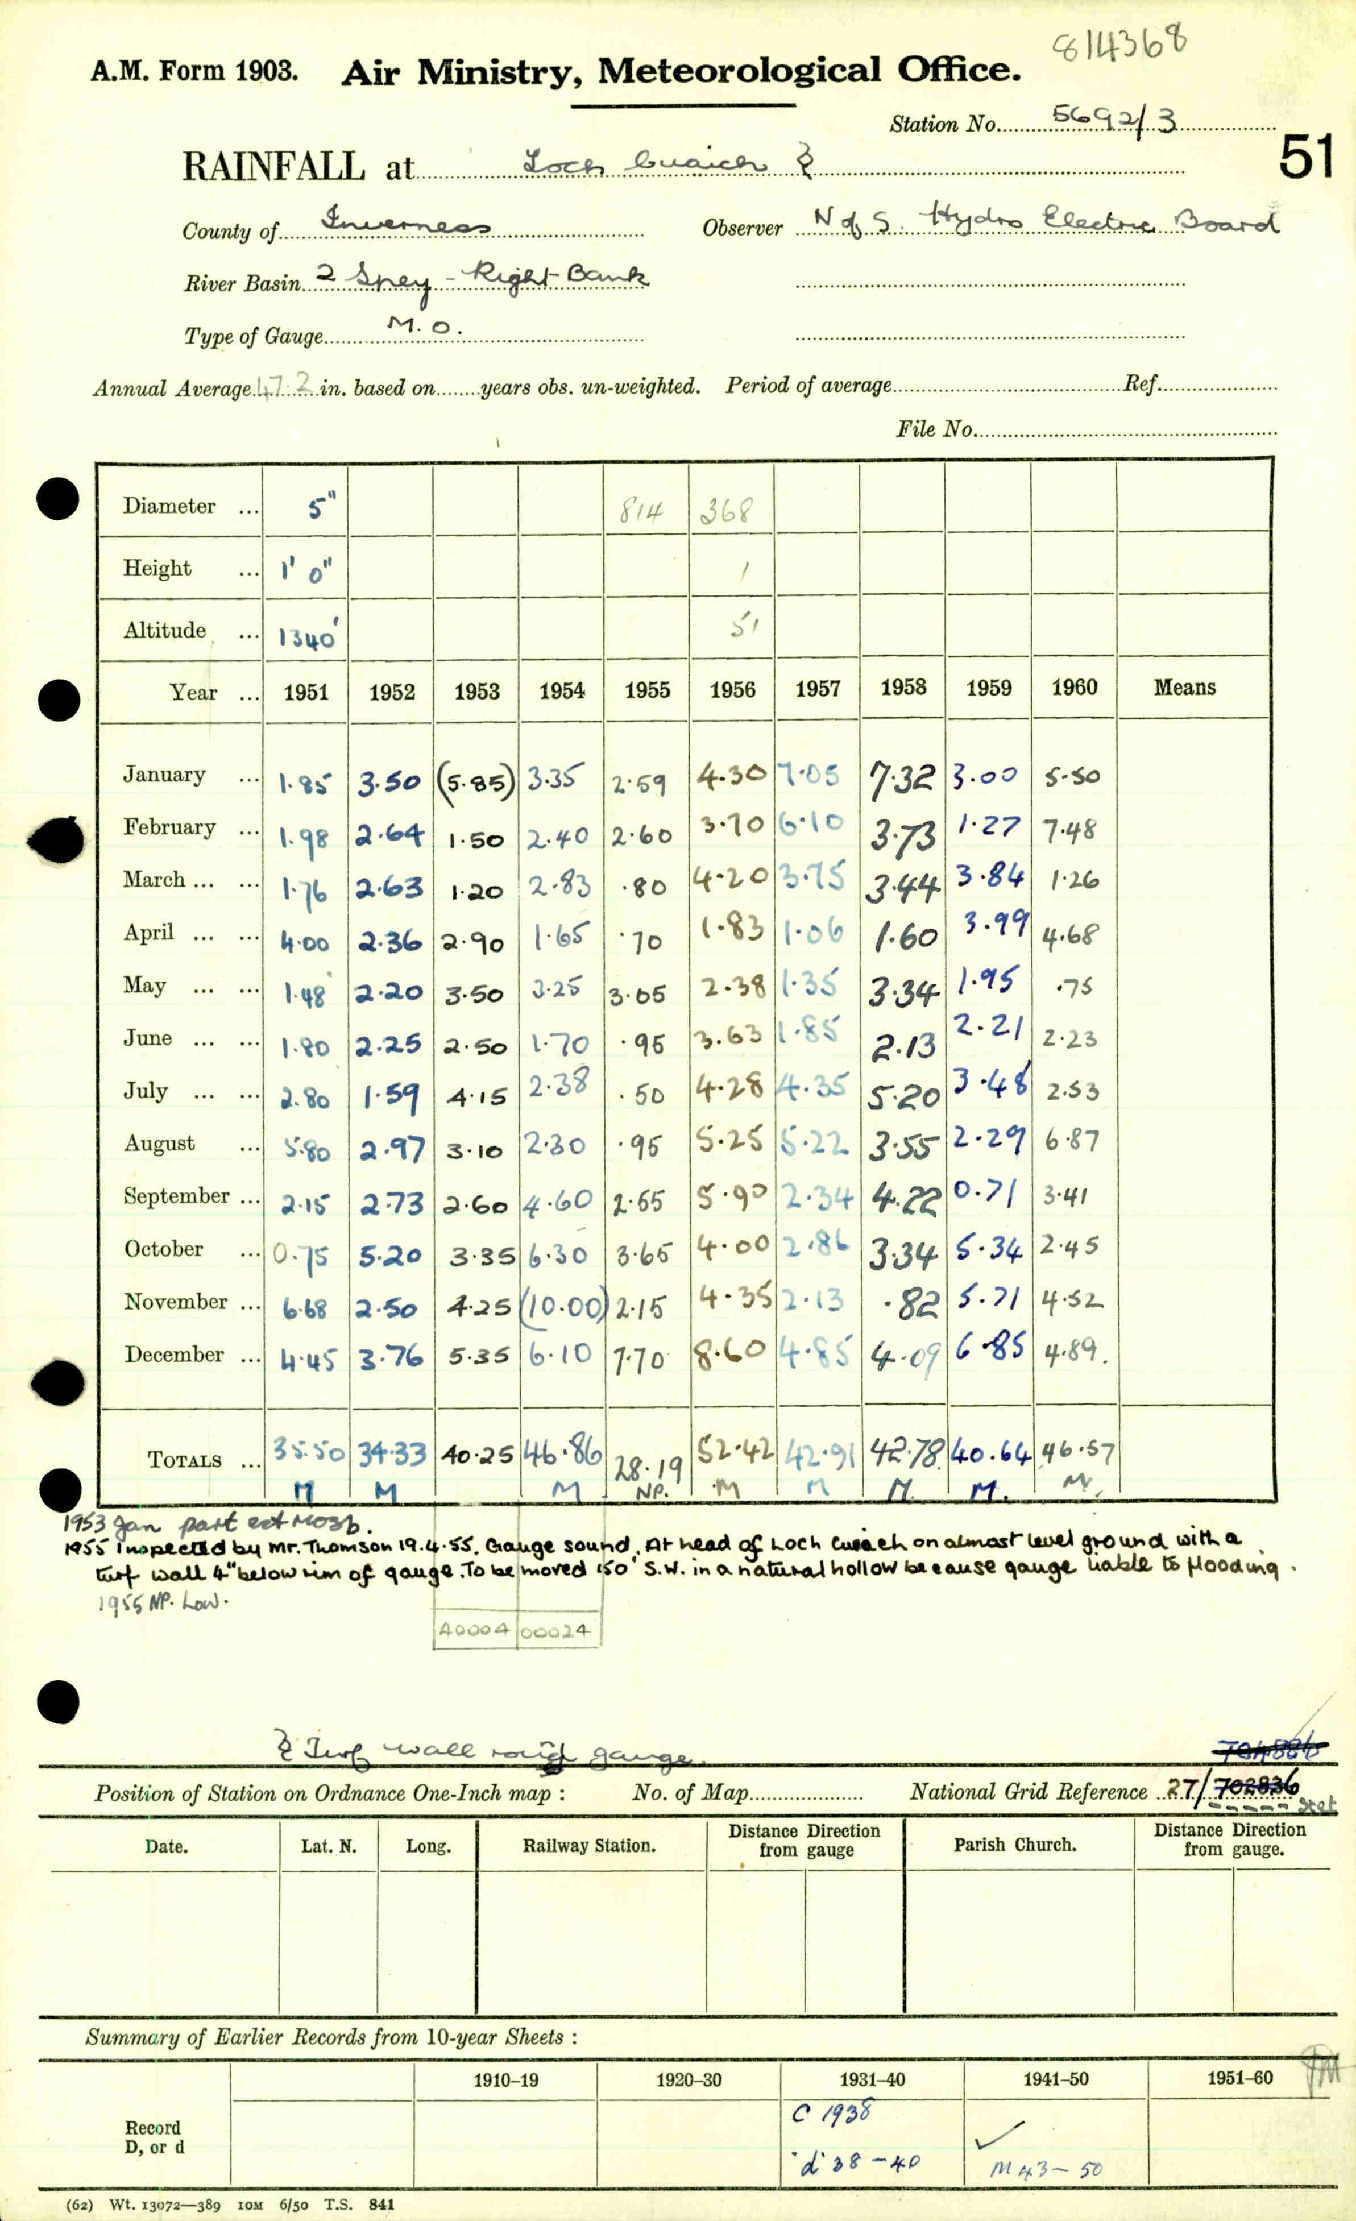 814368
A.M. Form 1903. Air Ministry, Meteorological Office.
Station No. 5692/3
51
RAINFALL at Loch Cuaich
County of Inverness Observer N of S. Hydro Electric Board
River Basin 2 Spey - Right Bank
Type of Gauge M.O.
Annual Average 47.2 in. based on years obs. un-weighted. Period of average Ref.
File No.
Diameter ... 5" 814 368
Height ... 1' 0" 1
Altitude ... 1340' 51
Year ... 1951 1952 1953 1954 1955 1956 1957 1958 1959 1960 Means
January ... 1.85 3.50 (5.85) 3.35 2.59 4.30 7.05 7.32 3.00 5.50
February ... 1.98 2.64 1.50 2.40 2.60 3.70 6.10 3.73 1.27 7.48
March ... ... 1.76 2.63 1.20 2.83 .80 4.20 3.75 3.44 3.84 1.26
April ... ... 4.00 2.36 2.90 1.65 .70 1.83 1.06 1.60 3.99 4.68
May ... ... 1.48 2.20 3.50 3.25 3.05 2.38 1.35 3.34 1.95 .75
June ... ... 1.80 2.25 2.50 1.70 .95 3.63 1.85 2.13 2.21 2.23
July ... ... 2.80 1.59 4.15 2.38 .50 4.28 4.35 5.20 3.48 2.53
August ... 5.80 2.97 3.10 2.30 .95 5.25 5.22 3.55 2.29 6.87
September ... 2.15 2.73 2.60 4.60 2.55 5.90 2.34 4.22 0.71 3.41
October ... 0.75 5.20 3.35 6.30 3.65 4.00 2.86 3.34 5.34 2.45
November ... 6.68 2.50 4.25 (10.00) 2.15 4.35 2.13 .82 5.71 4.52
December ... 4.45 3.76 5.35 6.10 7.70 8.60 4.85 4.09 6.85 4.89.
TOTALS ... 35.50 34.33 40.25 46.86 28.19 52.42 42.91 42.78 40.64 46.57
M M M NP. M M M. M. M.
1953 Jan part est MO3b.
1955 Inspected by Mr. Thomson 19.4.55. Gauge sound. At head of Loch Cuaich on almost level ground with a
turf wall 4" below rim of gauge. To be moved 150' S.W. in a natural hollow because gauge liable to flooding.
1955 NP. Low.
A0004 00024
Turf wall round gauge.
704886
Position of Station on Ordnance One-Inch map : No. of Map National Grid Reference 27/702836 stet
Date. Lat. N. Long. Railway Station. Distance from Direction gauge Parish Church. Distance from Direction gauge.
Summary of Earlier Records from 10-year Sheets :
1910–19 1920–30 1931–40 1941–50 1951–60
Record D, or d
C 1938
'd' 38 - 40 M 43 - 50
(62) Wt. 13072—389 10M 6/50 T.S. 841